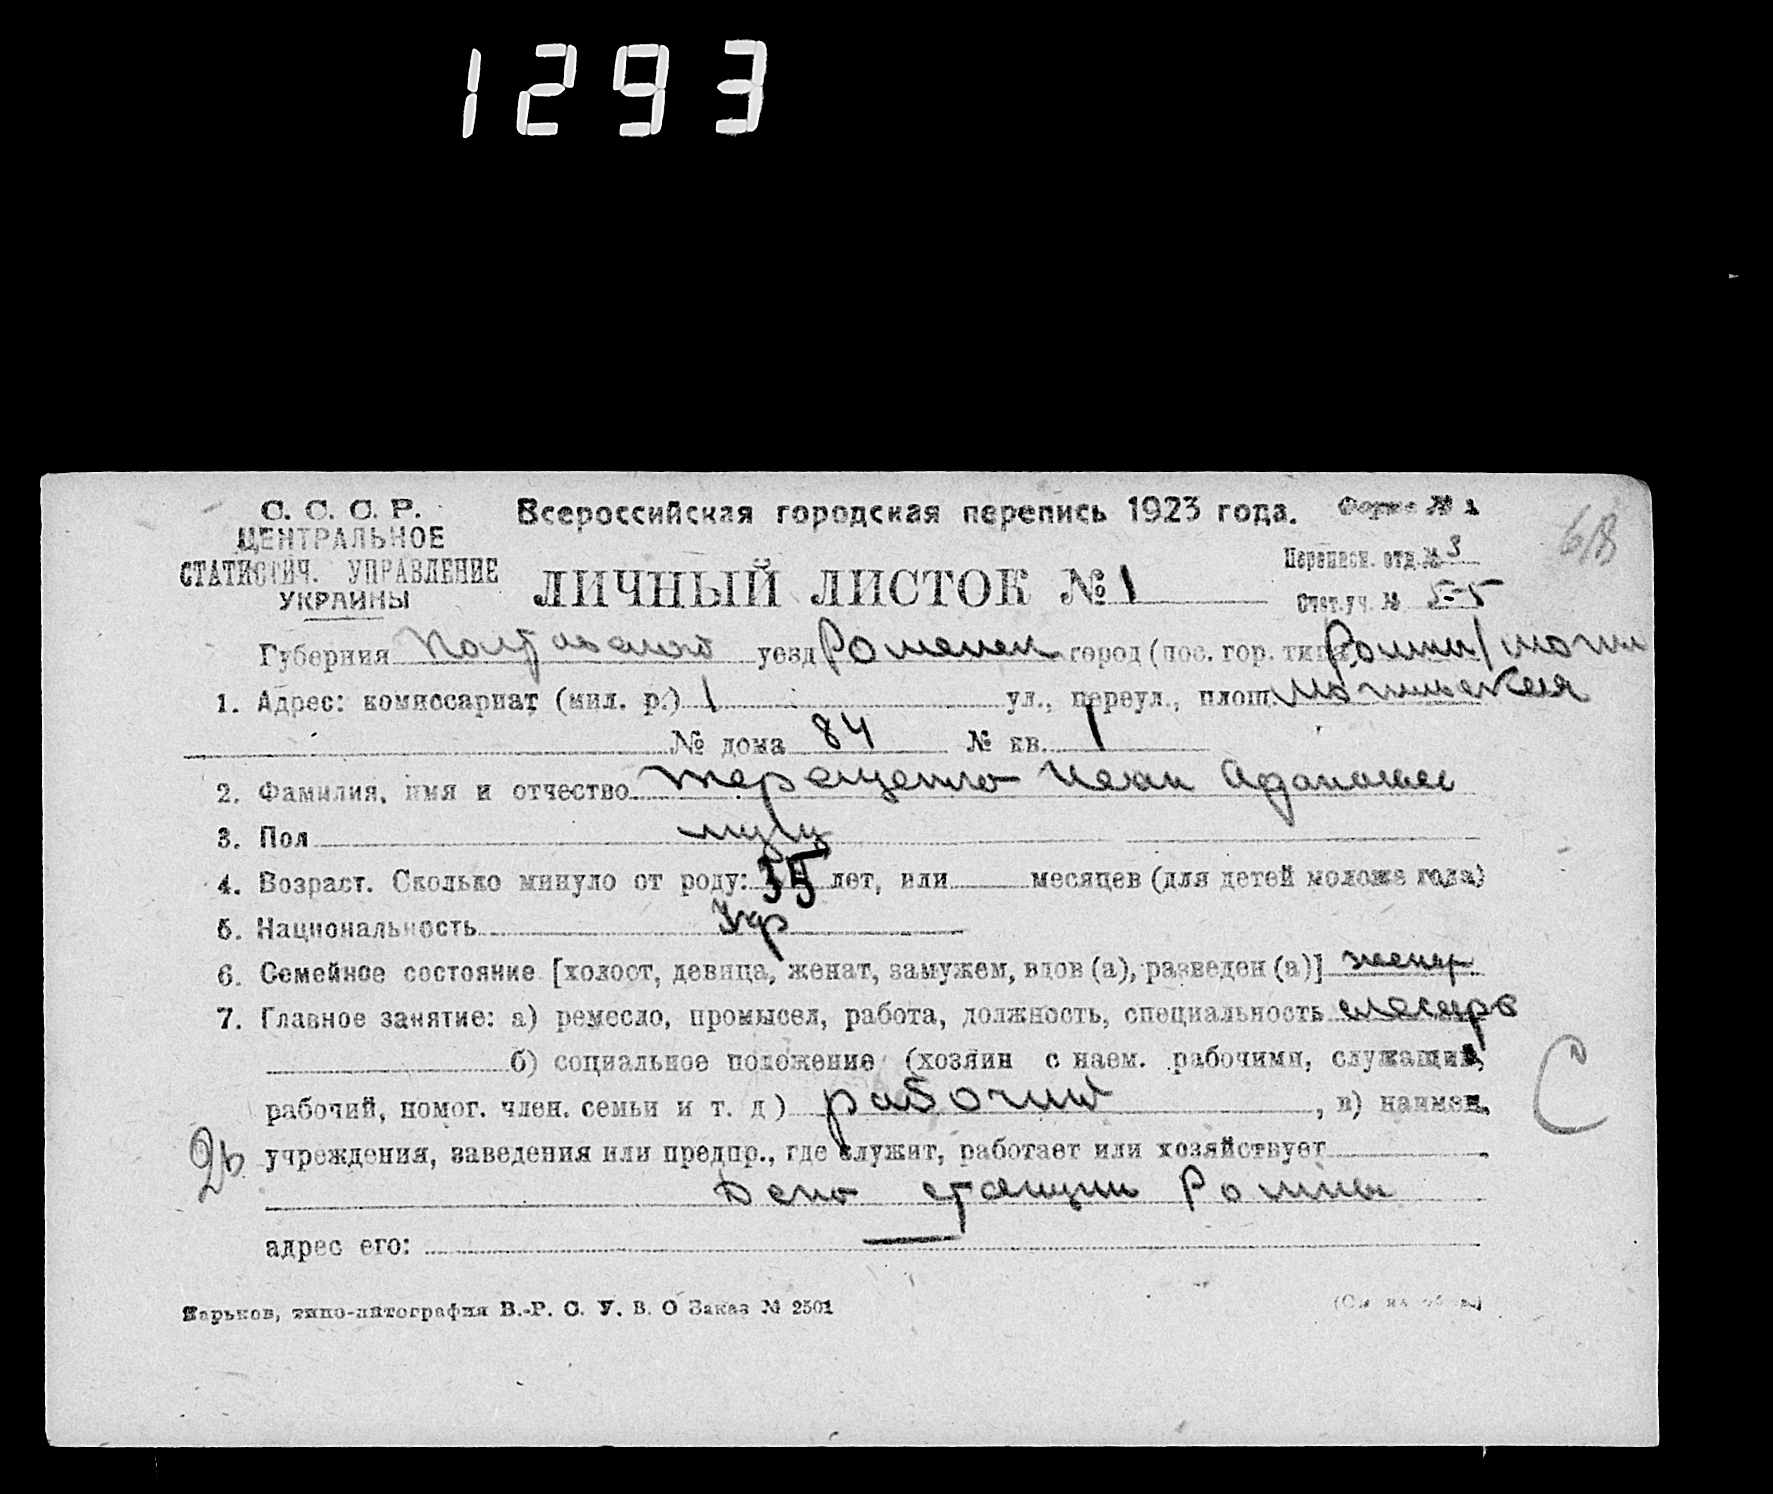 1293
С. С. С. Р.
ЦЕНТРАЛЬНОЕ
СТАТИСТИЧ. УПРАВЛЕНИЕ
УКРАИНЫ
Всероссийская городская перепись 1923 года.
Форма № 1
68
ЛИЧНЫЙ ЛИСТОК № 1
Переписн. отд. № 3
Счет. уч. № 5-5
Губерния Полтавской уезд Роменск город (пос. гор. типа) Ромны
1. Адрес: комиссариат (мил. р.) 1 ул., переул., площ.
№ дома 84 № кв. 1
2. Фамилия, имя и отчество Терещенко Иван
3. Пол муж
4. Возраст. Сколько минуло от роду: 35 лет, или месяцев (для детей моложе года)
5. Национальность Укр
6. Семейное состояние [холост, девица, женат, замужем, вдов (а), разведен (а)] женат
7. Главное занятие: а) ремесло, промысел, работа, должность, специальность слесарь
б) социальное положение (хозяин с наем. рабочими, служащий,
рабочий, помог. член. семьи и т. д) рабочий , в) наимен.
учреждения, заведения или предпр., где служит, работает или хозяйствует
Депо станции Ромны
адрес его:
Харьков, типо-литография В.-Р. С. У. В. О Заказ № 2501
С